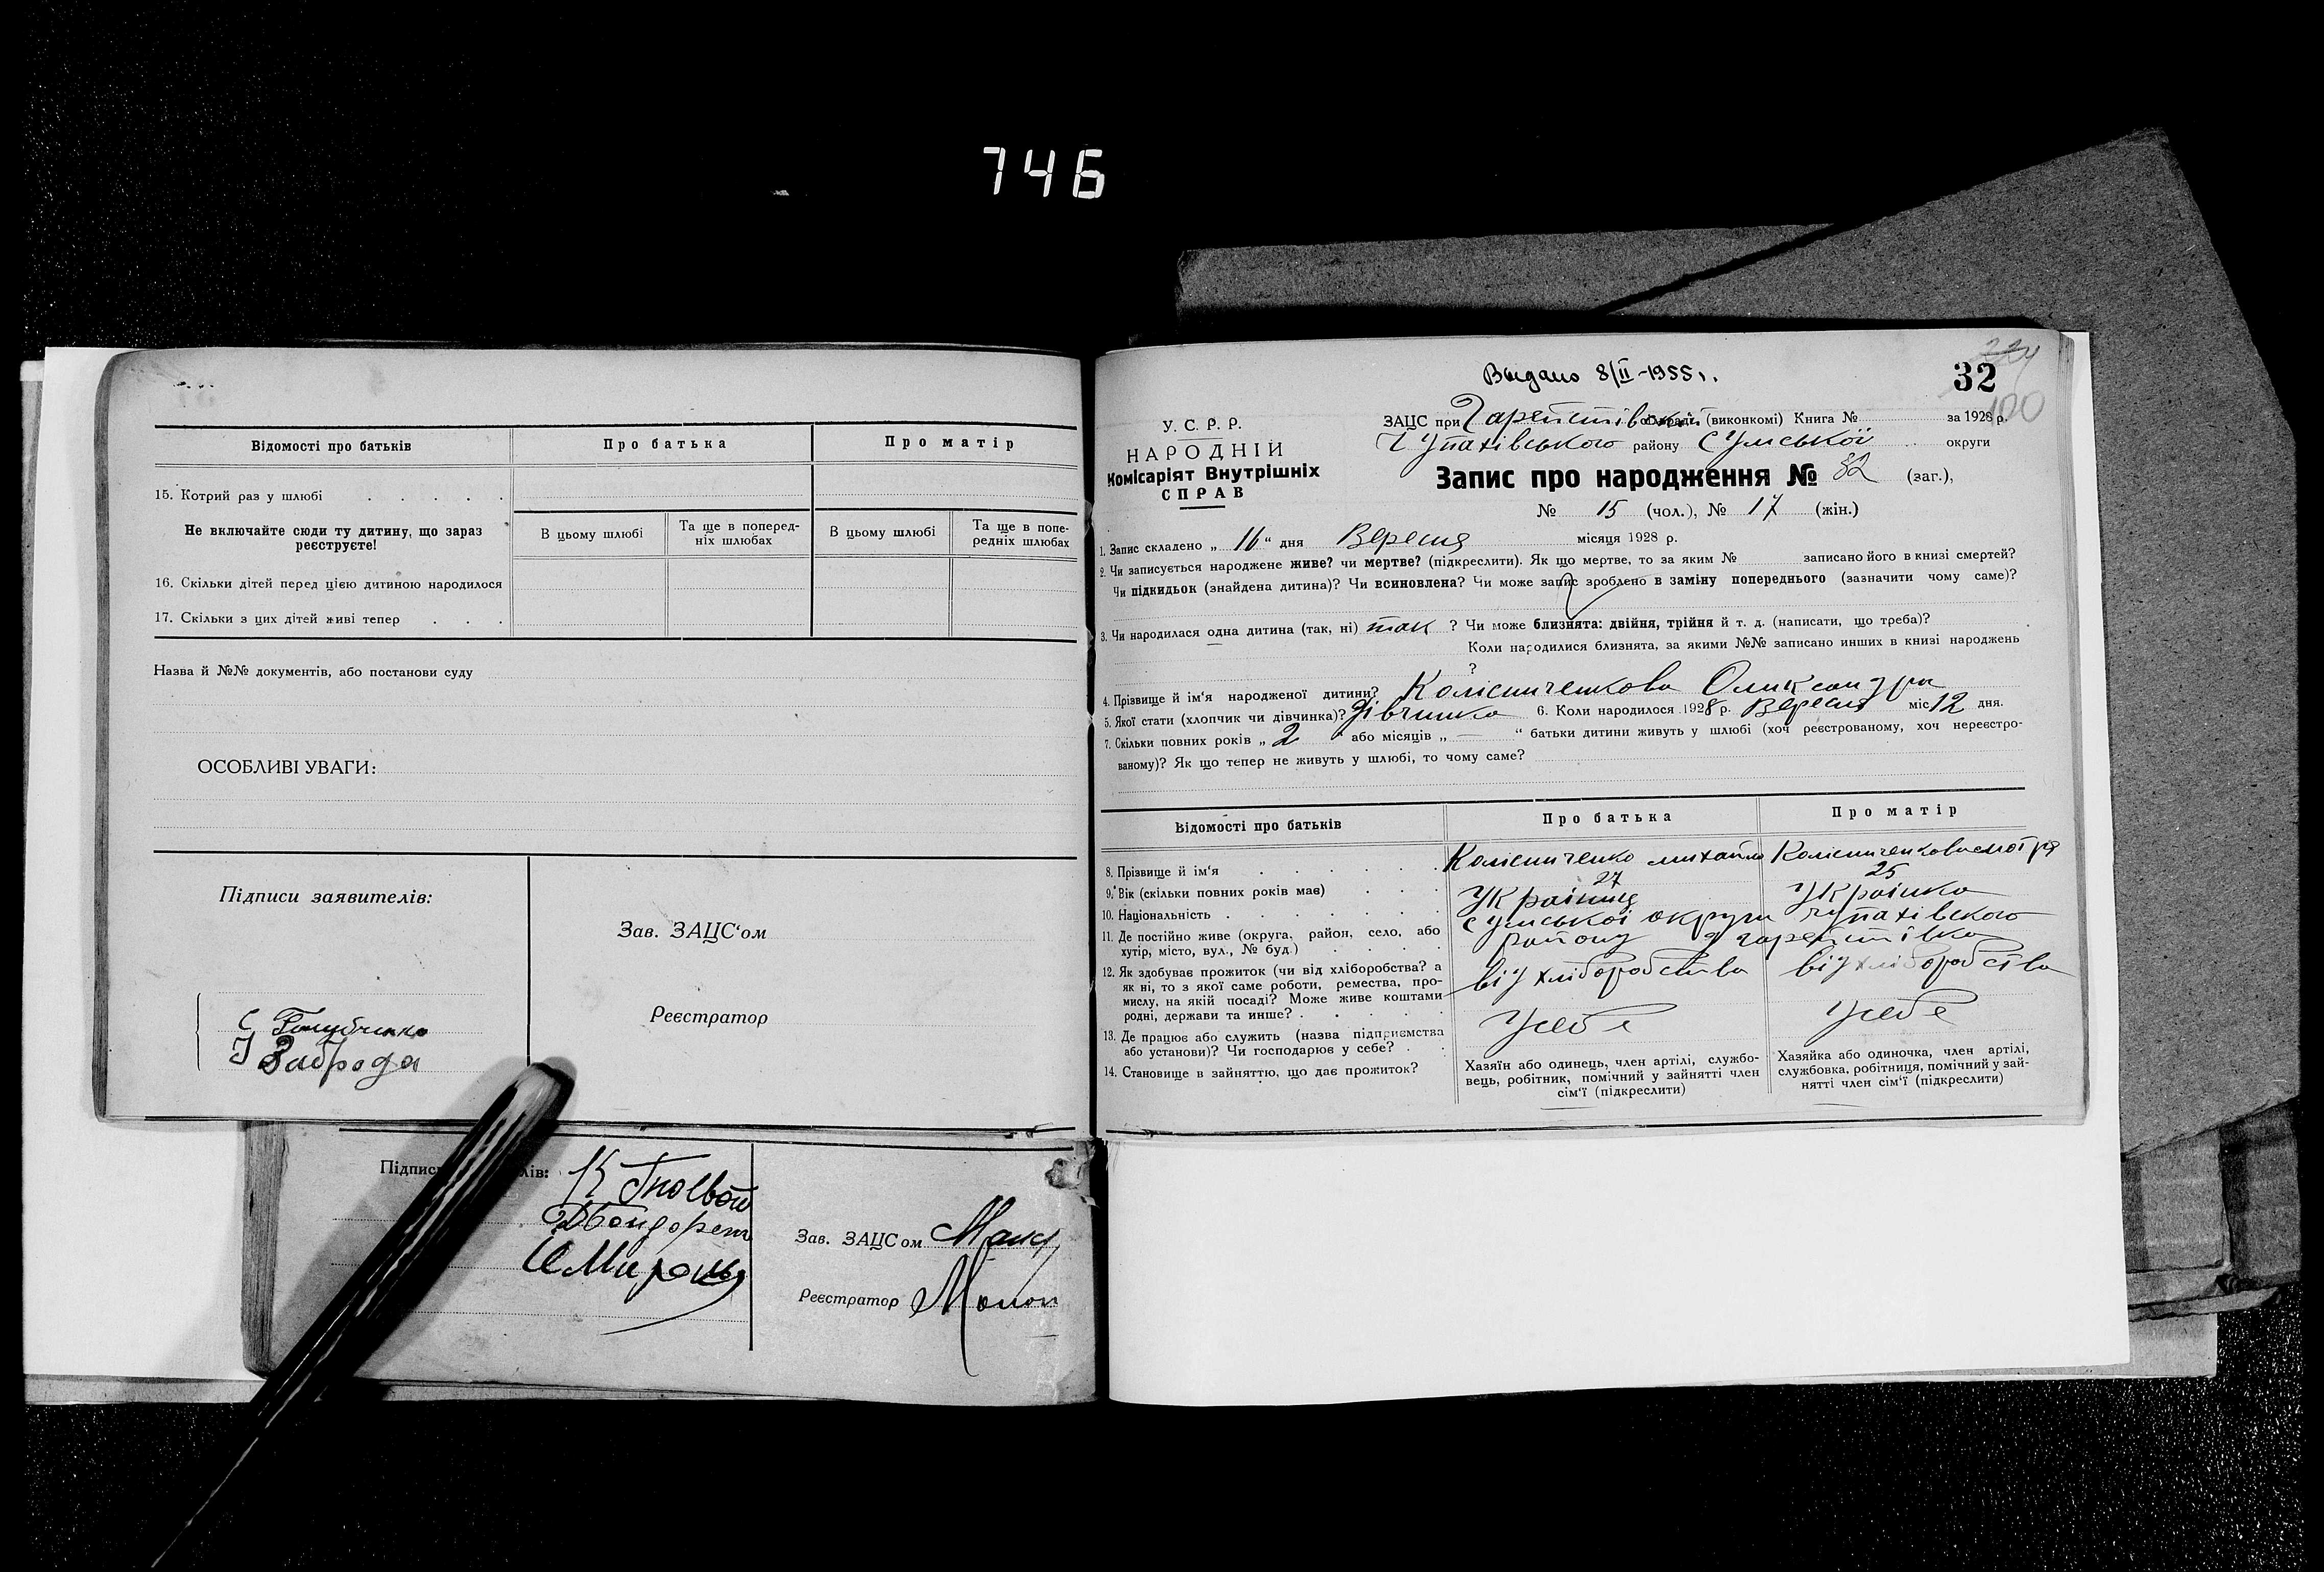 746
Відомості про батьків
Про батька
Про матір
15. Котрий раз у шлюбі . . . . .
Не включайте сюди ту дитину, що зараз
реєструєте!
В цьому шлюбі
Та ще в поперед-
ніх шлюбах
В цьому шлюбі
Та ще в попе-
редніх шлюбах
16. Скільки дітей перед цією дитиною народилося
17. Скільки з цих дітей живі тепер . . .
Назва й №№ документів, або постанови суду
ОСОБЛИВІ УВАГИ:
Підписи заявителів:
Зав. ЗАЦС'ом
Реєстратор
Заброда
Підпис лів:
Зав. ЗАЦС ом
Реєстратор
Выдано 8/II-1955 г.
32
100
У. С. Р. Р.
НАРОДНІЙ
Комісаріят Внутрішніх
СПРАВ
ЗАЦС при (виконкомі) Книга № за 1928 р.
Чупахівського району Сумської округи
Запис про народження № 32 (заг.),
№ 15 (чол.), № 17 (жін.)
1. Запис складено „ 16 “ дня Вересня місяця 1928 р.
2. Чи записується народжене живе? чи мертве? (підкреслити). Як що мертве, то за яким № записано його в книзі смертей?
Чи підкидьок (знайдена дитина)? Чи всиновлена? Чи може запис зроблено в заміну попереднього (зазначити чому саме)?
3. Чи народилася одна дитина (так, ні) так ? Чи може близнята: двійня, трійня й т. д. (написати, що треба)?
Коли народилися близнята, за якими №№ записано инших в книзі народжень
?
4. Прізвище й ім'я народженої дитини? Колісниченкова Олександра
5. Якої стати (хлопчик чи дівчинка)? дівчинка 6. Коли народилося 1928 р. Вересня міс 12 дня.
7. Скільки повних років „ 2 “ або місяців „ — “ батьки дитини живуть у шлюбі (хоч реєстрованому, хоч нереєстро-
ваному)? Як що тепер не живуть у шлюбі, то чому саме?
Відомості про батьків
Про батька
Про матір
8. Прізвище й ім'я . . . . . . Колісниченко михайло Колісниченкова
9. Вік (скільки повних років має) . . . 27 25
10. Національність . . . . . . . Українец Українка
11. Де постійно живе (округа, район, село, або
хутір, місто, вул., № буд.) . . . .
Сумської округи Чупахівского
району
12. Як здобуває прожиток (чи від хліборобства? а
як ні, то з якої саме роботи, ремества, про-
мислу, на якій посаді? Може живе коштами
родні, держави та инше? . . . . .
від хліборобства
від хліборобства
13. Де працює або служить (назва підприємства
або установи)? Чи господарює у себе? . .
У себе
У себе
14. Становище в зайняттю, що дає прожиток?
Хазяїн або одинець, член артілі, службо-
вець, робітник, помічний у зайнятті член
сім'ї (підкреслити)
Хазяйка або одиночка, член артілі,
службовка, робітниця, помічний у зай-
нятті член сім'ї (підкреслити)